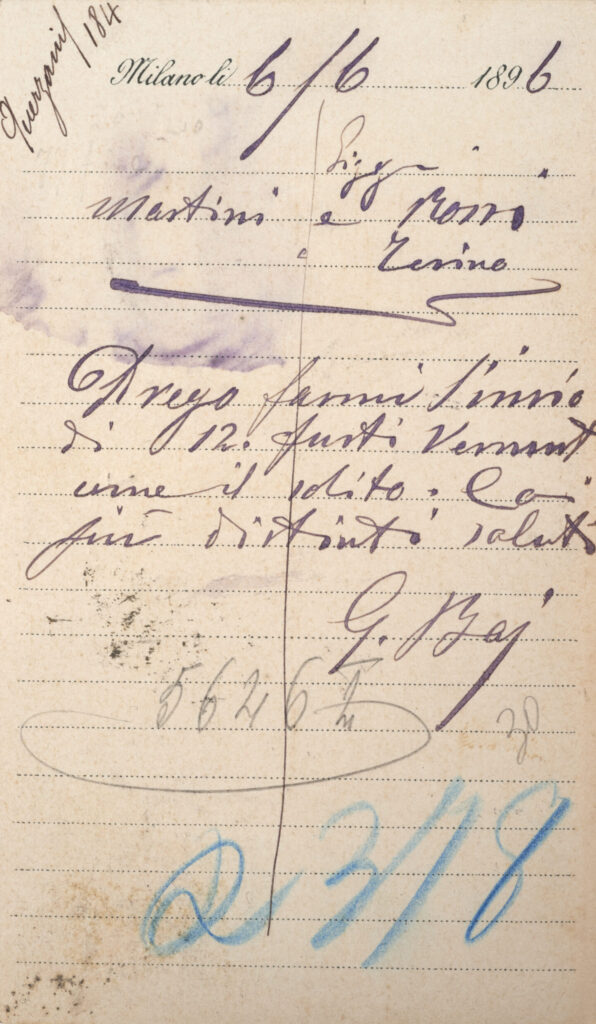 184
Milano li 6/6 1896
Sigg.
Martini e Rossi
Torino
Prego farmi l'invio
di 12. fusti Vermut
come il solito. Coi
più distinti saluti
G. Baj
5646
23/18